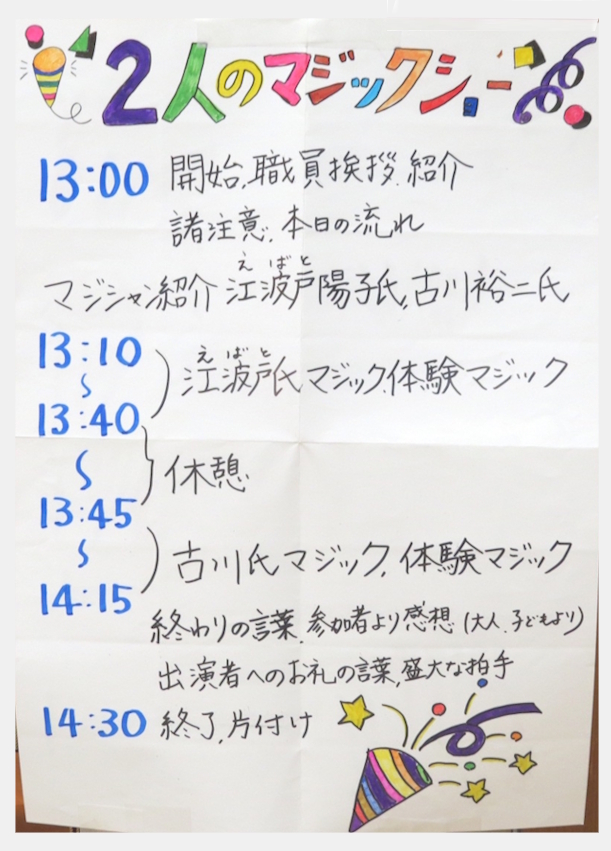 2人のマジックショー
13:00 開始、職員挨拶、紹介
諸注意、本日の流れ
えばと
マジシャン紹介 江波戸陽子氏、古川裕二氏
13:10
えばと
〜 江波戸氏マジック、体験マジック
13:40
〜 休憩
13:45
〜 古川氏マジック、体験マジック
14:15
終わりの言葉、参加者より感想(大人、子どもより)
出演者へのお礼の言葉、盛大な拍手
14:30 終了、片付け